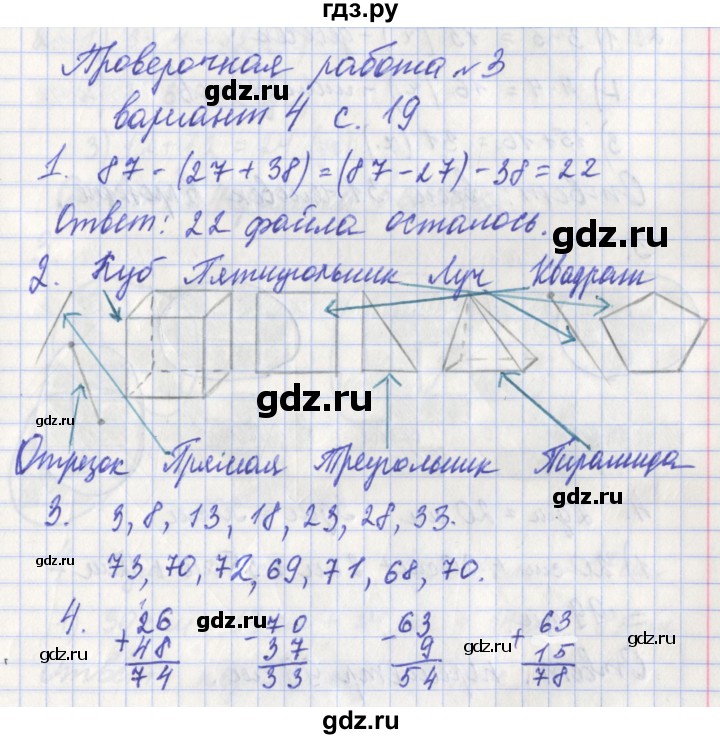 гдз.ру
Проверочная работа №3
gdz.ru
вариант 4 с. 19
1. 87 - (27 + 38) = (87 - 27) - 38 = 22
gdz.ru
Ответ: 22 файла осталось.
gdz.ru
2. Куб Пятиугольник Луч Квадрат
gdz.ru
gdz.ru
Отрезок Прямая Треугольник Пирамида
gdz.ru
3. 3, 8, 13, 18, 23, 28, 33.
gdz.ru
73, 70, 72, 69, 71, 68, 70.
4. +26 -70 -63 +63
gdz.ru gdz.ru
48 37 9 15
gdz.ru gdz.ru gdz.ru
74 33 54 78
gdz.ru